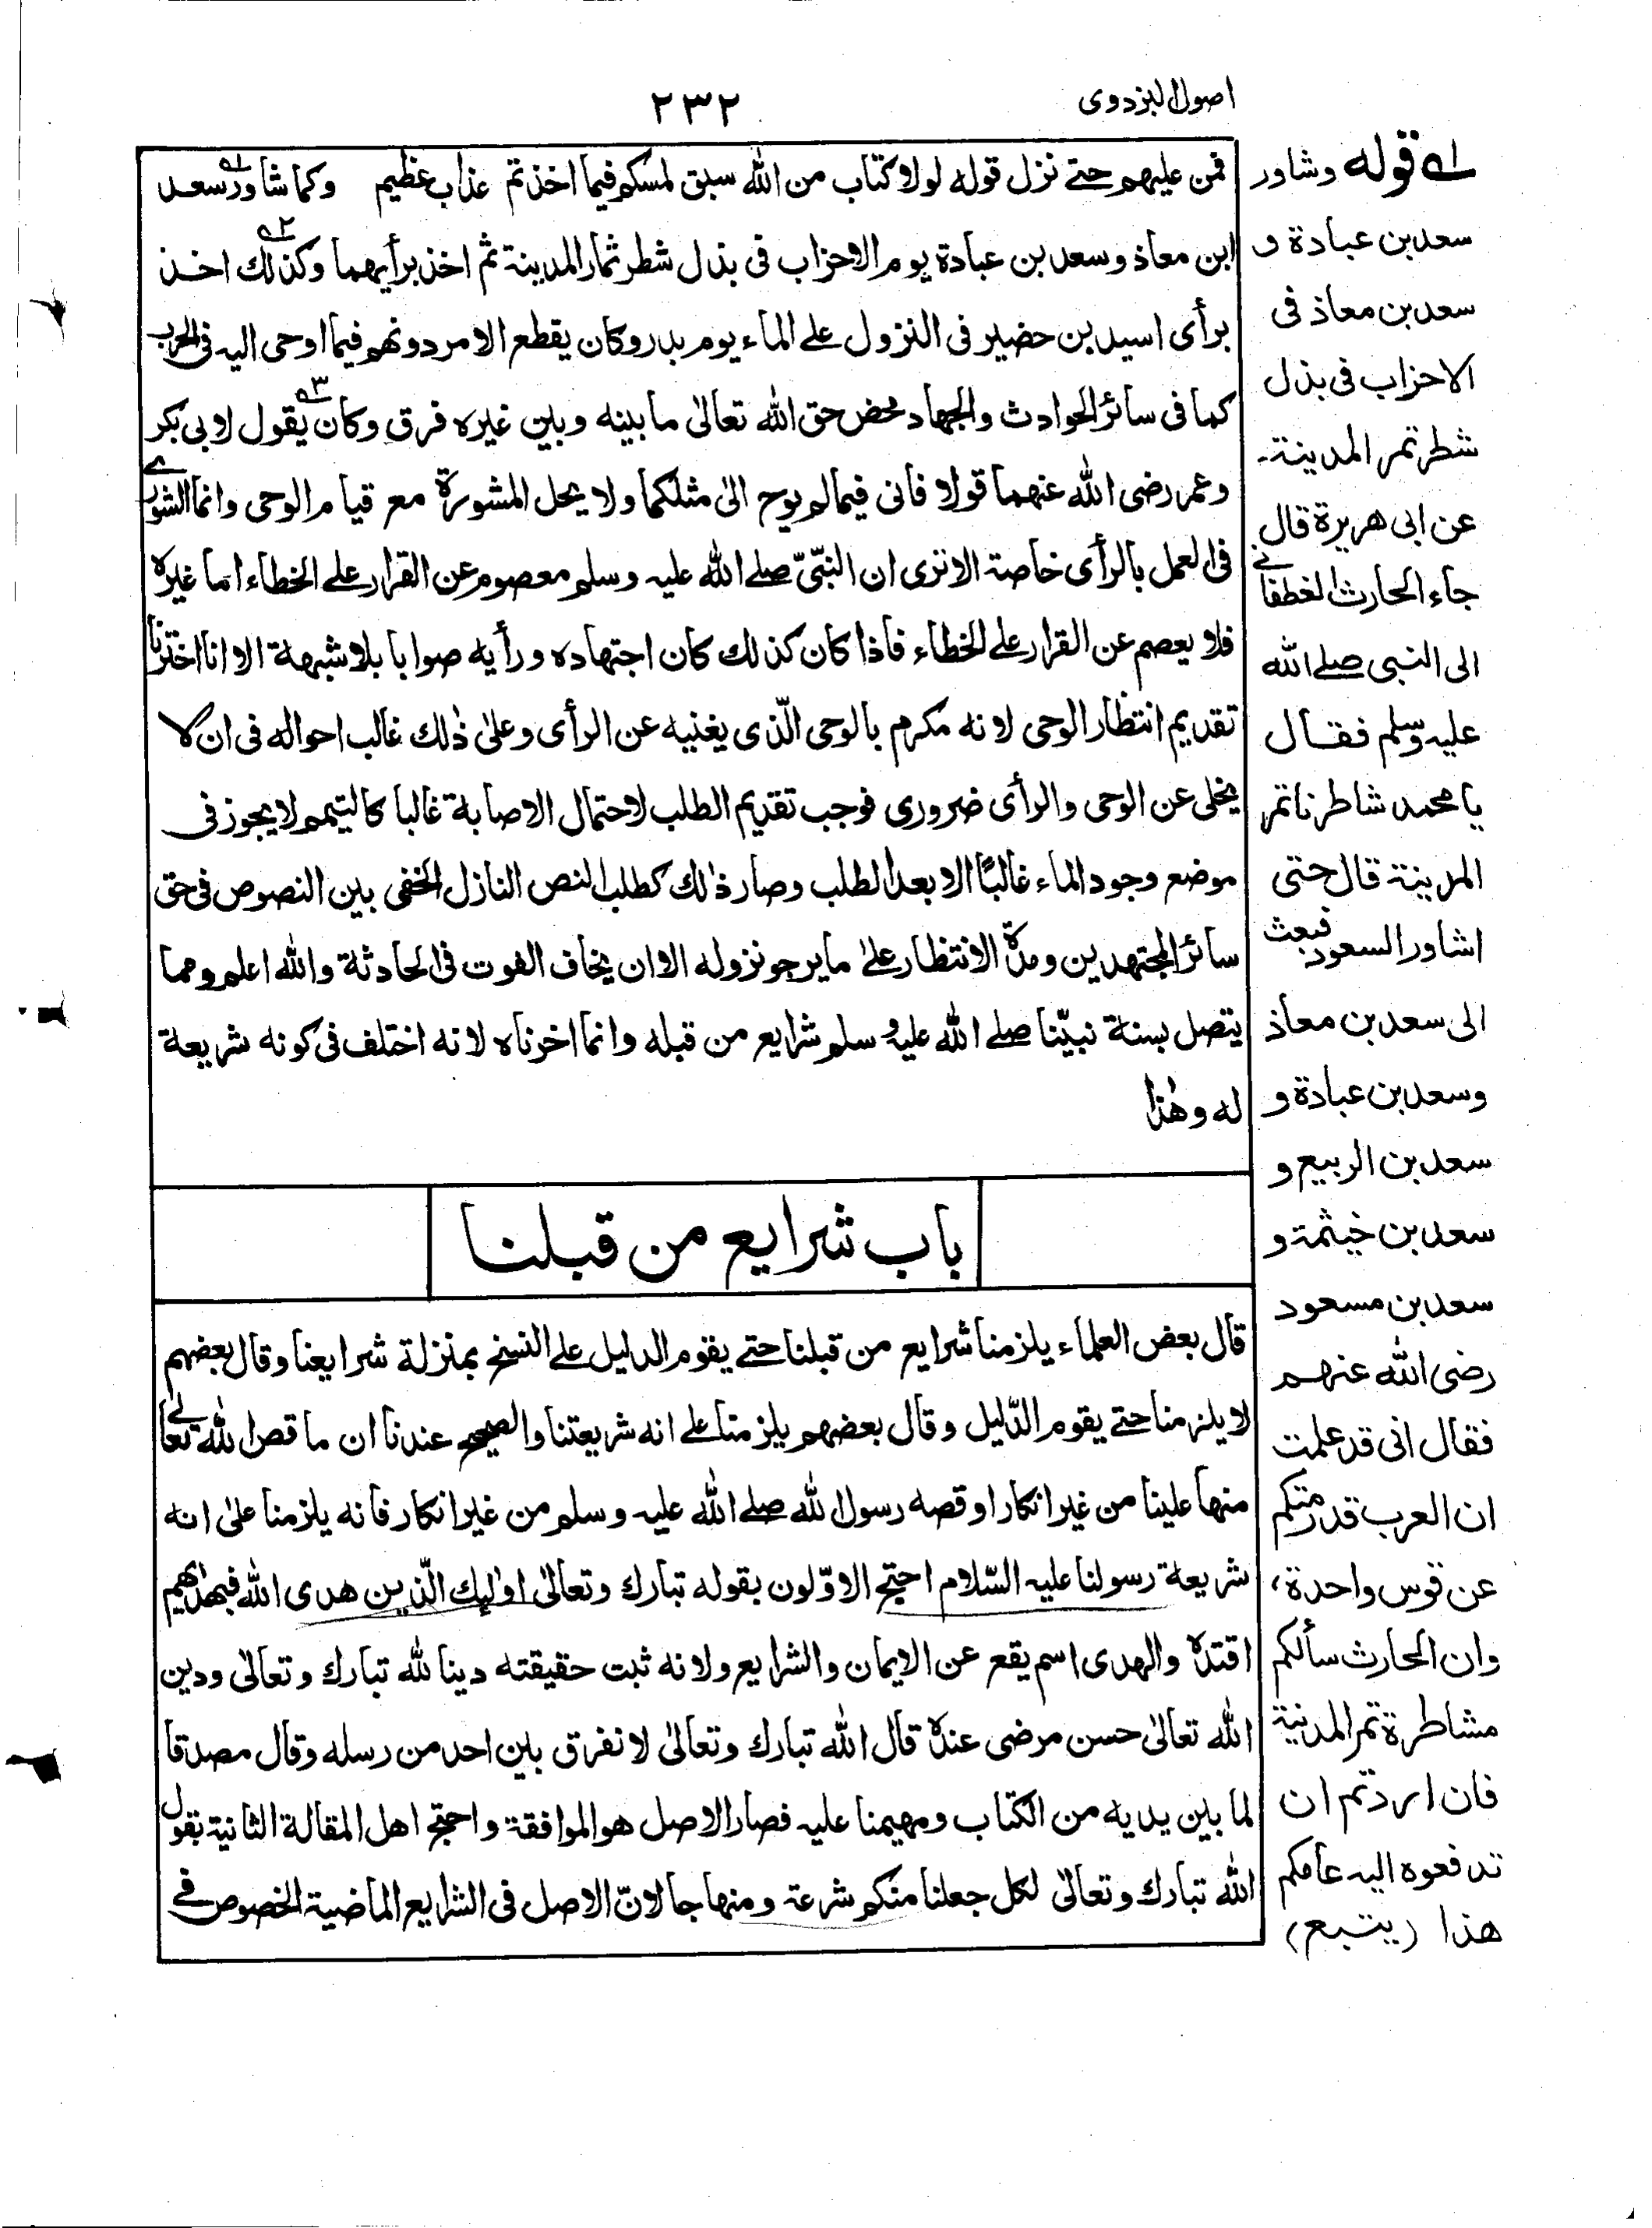 اصول البزدوى
٢٣٢
فمن عليهم حتے نزل قوله لولا كتاب من الله سبق لمسكم فيما اخذتم عذاب عظيم وكما شاور سعد
ابن معاذ وسعد بن عبادة يوم الاحزاب فى بذل شطر ثمار المدينة ثم اخذ برأيهما وكذلك اخذ
برأى اسيد بن حضير فى النزول علے الماء يوم بدر وكان يقطع الامر دونهم فيما اوحى اليه فى الحرب
كما فى سائر الحوادث والجهاد محض حق الله تعالىٰ ما بينه وبين غيره فرق وكان يقول لابى بكر
وعمر رضى الله عنهما قولا فانى فيما لم يوح الىٰ مثلكما ولا يحل المشورة مع قيام الوحى وانما الشورے
فى العمل بالرأى خاصة الا ترى ان النّبىّ صلے الله عليه وسلم معصوم عن القرار علے الخطاء اما غيره
فلا يعصم عن القرار علے الخطاء فاذا كان كذلك كان اجتهاده ورأيه صوابا بلا شبهة الا انا اخترنا
تقديم انتظار الوحى لانه مكرم بالوحى الّذى يغنيه عن الرأى وعلىٰ ذٰلك غالب احواله فى ان لا
يخلى عن الوحى والرأى ضرورى فوجب تقديم الطلب لاحتمال الاصابة غالبا كالتيمم لا يجوز فى
موضع وجود الماء غالبًا الا بعد الطلب وصار ذٰلك كطلب النص النازل الخفى بين النصوص فى حق
سائر المجتهدين ومدّة الانتظار علىٰ ما يرجو نزوله الا ان يخاف الفوت فى الحادثة والله اعلم ومما
يتصل بسنة نبيّنا صلے الله عليه وسلم شرايع من قبله وانما اخرناه لانه اختلف فى كونه شريعة
له وهٰذا
باب شرايع من قبلنا
قال بعض العلماء يلزمنا شرايع من قبلنا حتے يقوم الدليل علے النسخ بمنزلة شرايعنا وقال بعضهم
لا يلزمنا حتے يقوم الدّليل وقال بعضهم يلزمنا علے انه شريعتنا والصحيح عندنا ان ما قص الله تعالے
منها علينا من غير انكار او قصه رسول لله صلے الله عليه وسلم من غير انكار فانه يلزمنا علىٰ انه
شريعة رسولنا عليه السّلام احتج الاوّلون بقوله تبارك وتعالىٰ اولٰيك الّذين هدى الله فبهدٰيهم
اقتده والهدى اسم يقع عن الايمان والشرايع ولانه ثبت حقيقته دينا لله تبارك وتعالىٰ ودين
الله تعالىٰ حسن مرضى عنده قال الله تبارك وتعالىٰ لا نفرق بين احد من رسله وقال مصدقا
لما بين يديه من الكتاب ومهيمنا عليه فصار الاصل هو الموافقة واحتج اهل المقالة الثانية بقول
الله تبارك وتعالىٰ لكل جعلنا منكم شرعة ومنهاجا لانّ الاصل فى الشرايع الماضية الخصوص فے
١ے قوله وشاور
سعد بن عبادة و
سعد بن معاذ فى
الاحزاب فى بذل
شطر تمر المدينة۔
عن ابى هريرة قال
جاء الحارث الغطفانے
الى النبى صلے الله
عليه وسلم فقال
يا محمد شاطرنا تمر
المدينة قال حتى
اشاور السعود فبعث
الى سعد بن معاذ
وسعد بن عبادة و
سعد بن الربيع و
سعد بن خيثمة و
سعد بن مسعود
رضى الله عنهم
فقال انى قد علمت
ان العرب قد رمتكم
عن قوس واحدة،
وان الحارث سألكم
مشاطرة تمر المدنية
فان اردتم ان
تدفعوه اليه عامكم
هذا (يتبع)